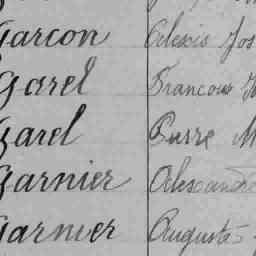 Garcon Alexis Jos
Garel Francois
Garel Pierre M
Garnier Alexandre
Garnier Auguste